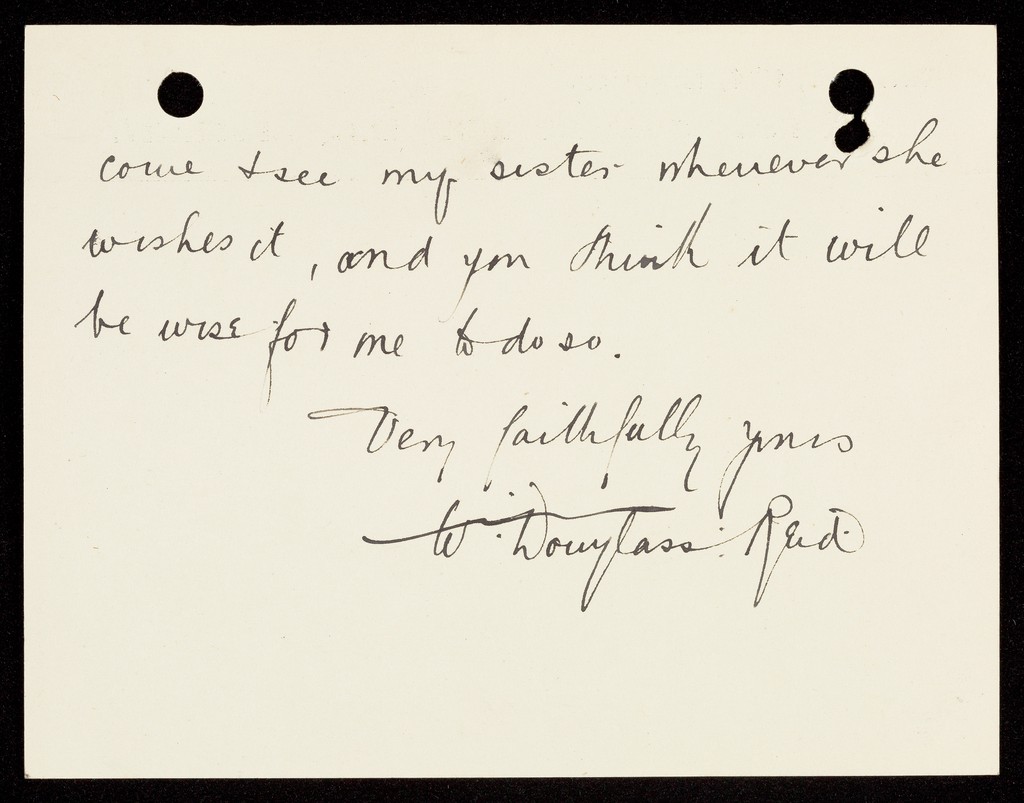 come & see my sister whenever she
wishes it, and you think it will
be wise for me to do so.
Very faithfully yours
W. Douglass. Reid.